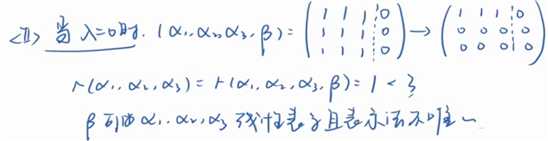 <II> 当 λ=0时. (α₁.α₂.α₃.β) = (1 1 1 0 1 1 1 0 1 1 1 0) → (1 1 1 0 0 0 0 0 0 0 0 0)
r(α₁.α₂.α₃) = r(α₁.α₂.α₃.β) = 1 < 3
β可由α₁.α₂.α₃线性表示且表示法不唯一